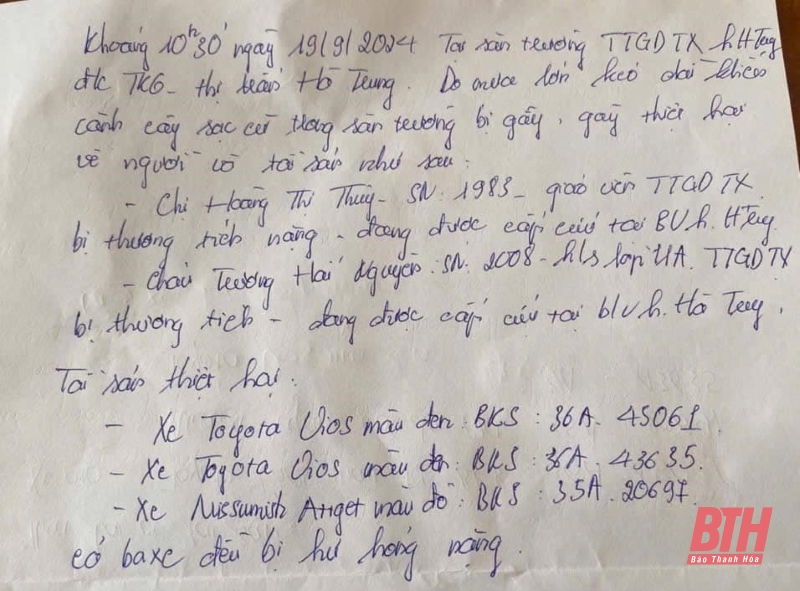 Khoảng 10h30' ngày 19/9/2024 Tại sân trường TTGDTX h HTrung
đ/c TK6 - thị trấn Hà Trung. Do mưa lớn kéo dài khiến
cành cây sạc cừ trong sân trường bị gẫy, gây thiệt hại
về người và tài sản như sau:
- Chị Hoàng Thị Thủy - SN: 1983 - giáo viên TTGDTX
bị thương tích nặng - đang được cấp cứu tại BV h. HTrung
- Cháu Trương Hải Nguyên: SN: 2008 - h/s lớp 11A. TTGDTX
bị thương tích - đang được cấp cứu tại b/v h. Hà Trung.
Tài sản thiệt hại:
- Xe Toyota Vios màu đen: BKS: 36A. 45061.
- Xe Toyota Vios màu đen: BKS: 36A. 43635.
- Xe màu đỏ: BKS: 35A. 20697.
cả ba xe đều bị hư hỏng nặng.
BTH
Báo Thanh Hóa